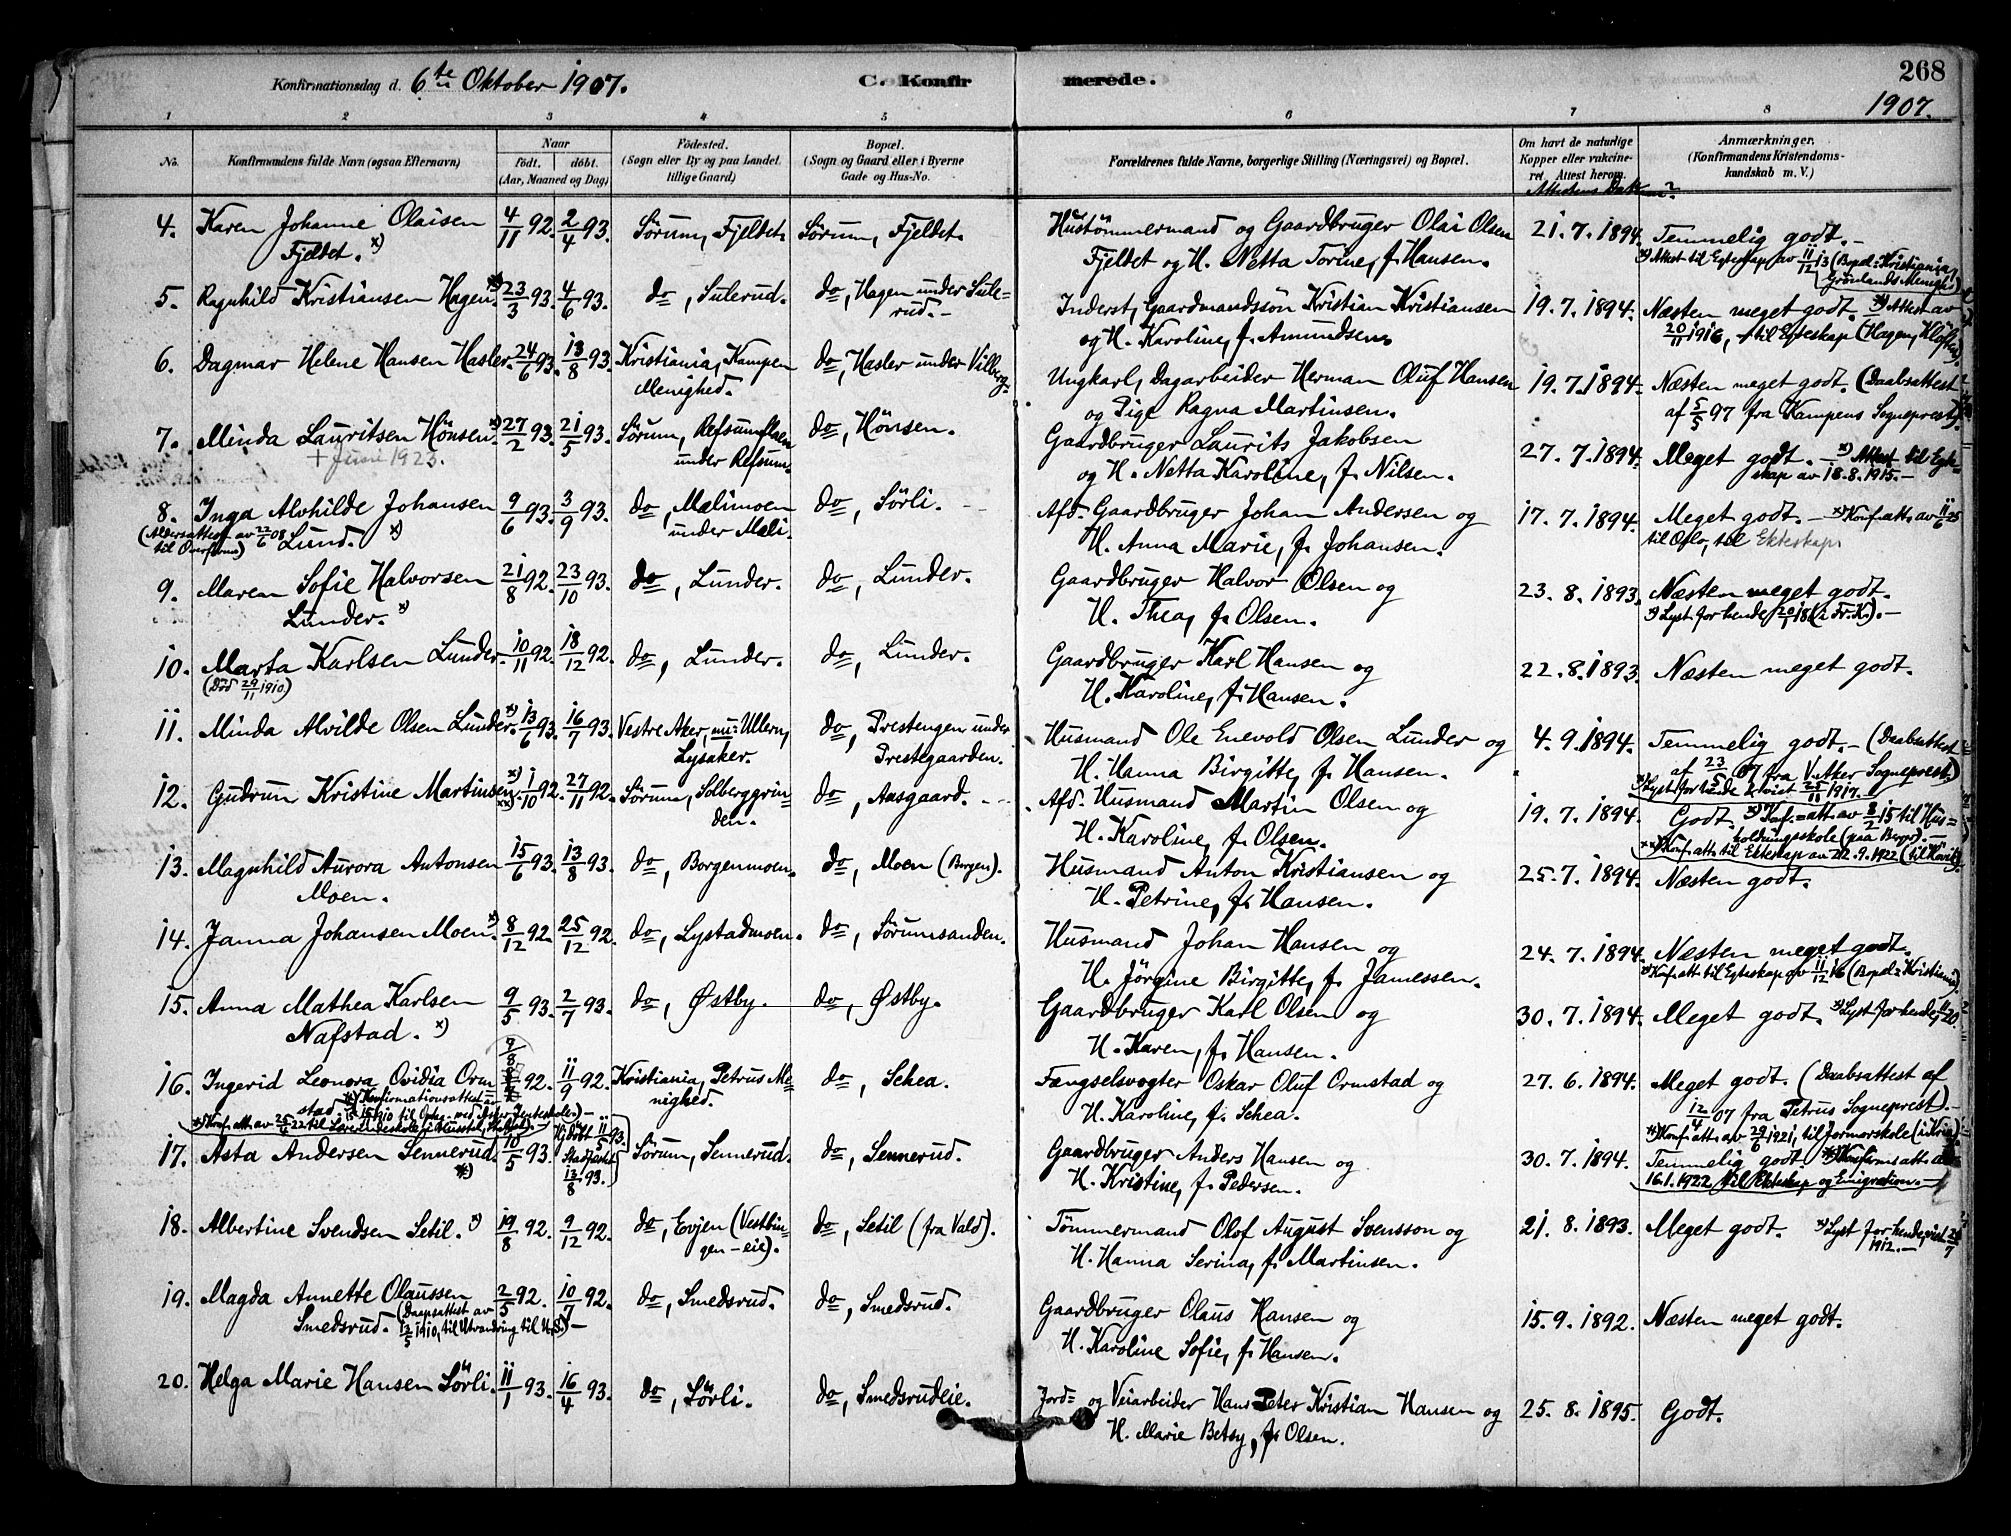 Konfirmationsdag d. 6te Oktober 1907. C. Konfirmerede. 268
1907.
1 2 3 4 5 6 7 8
No. Konfirmandens fulde Navn (ogsaa Efternavn) Naar født. døbt. (Aar, Maaned og Dag) Fødested. (Sogn eller By og paa Landet tillige Gaard) Bopæl. (Sogn og Gaard eller i Byerne Gade og Hus-No. Forældrenes fulde Navne, borgerlige Stilling (Næringsvei) og Bopæl. Om havt de naturlige Kopper eller vaccineret. Attest herom. Anmærkninger. (Konfirmandens Kristendomskundskab m. V.)
Attestens Datum?
4. Karen Johanne Olaisen 4/11 92. 2/4 93. Sörum, Fjeldet. Sörum, Fjeldet. Hustömmermand og Gaardbruger Olai Olsen 21.7.1894. Temmelig godt. –
Fjeldet. x) Fjeldet og H. Netta Torine, f. Hansen. x) Attest til Egteskap av 11/12 13 (Bopel: Kristiania, Grønlands Menigh.)
5. Ragnhild Kristiansen Hagen. x) 23/3 93. 4/6 93. do, Sulerud. do, Hagen under Sulerud. – Inderst, Gaardmandssön Kristian Kristiansen 19.7.1894. Næsten meget godt. – x) Attest av
og H. Karoline, f. Amundsen. 20/11 1916, til Egteskap (Hagen, Kløften).
6. Dagmar Helene Hansen Hasler. 24/6 93. 13/8 93. Kristiania, Kampen Menighed. do, Hasler under Vilberg. Ungkarl, Dagarbeider Herman Oluf Hansen 19.7.1894. Næsten meget godt. (Daabsattest
og Pige Ragna Martinsen. af 5/5 97 fra Kampens Sogneprest).
7. Minda Lauritsen Hönsen. x) 27/2 93. 21/5 93. Sörum, Refsumflaen under Refsum. do, Hönsen. Gaardbruger Laurits Jakobsen 27.7.1894. Meget godt. – x) Attest til Egte-
+ Juni 1923. og H. Netta Karoline, f. Nilsen. skap av 18.8.1915. –
8. Inga Alvhilde Johansen 9/6 93. 3/9 93. do, Malimoen under Mali. do, Sörli. Afd. Gaardbruger Johan Andersen og 17.7.1894. Meget godt. – x) Konf.att. av 11/6 25
(Aldersattest av 22/6 08 til) Lund. x) H. Anna Marie, f. Johansen. til Oslo, til Ekteskap.
9. Maren Sofie Halvorsen 21/8 92. 23/10 93. do, Lunder. do, Lunder. Gaardbruger Halvor Olsen og 23.8.1893. Næsten meget godt.
Lunder. x) H. Thea, f. Olsen. x) Lyst for hende 20/1 18 (i Fr. K.). –
10. Marta Karlsen Lunder. 10/11 92. 18/12 92. do, Lunder. do, Lunder. Gaardbruger Karl Hansen og 22.8.1893. Næsten meget godt.
(Död 29/11 1910.) H. Karoline, f. Hansen.
11. Minda Alvilde Olsen Lunder. x) 13/6 93. 16/7 93. Vestre Aker, nu: Ullern, Lysaker. do, Prestengen under Prestegaarden. Husmand Ole Enevold Olsen Lunder og 4.9.1894. Temmelig godt. – (Daabsattest
H. Hanna Birgitte, f. Hansen. af 23/5 07 fra V. Aker Sogneprest.)
x) Lyst for hende & vist 25/11 1917. –
12. Gudrun Kristine Martinsen. x) xx) 1/10 92. 27/11 92. Sörum, Solberggrinden. do, Aasgaard. Afd. Husmand Martin Olsen og 19.7.1894. Godt. x) Kof.=att. av 8/2 15 til Hus=
H. Karoline, f. Olsen. holdningsskole (paa Berger). –
xx) Konf.att. til Ekteskap av 22.9.1922
13. Magnhild Aurora Antonsen 15/6 93. 13/8 93. do, Borgenmoen. do, Moen (Borgen). Husmand Anton Kristiansen og 25.7.1894. Næsten godt.
Moen. H. Petrine, f. Hansen.
14. Janna Johansen Moen. x) 8/12 92. 25/12 92. do, Lystadmoen. do, Sörumsanden. Husmand Johan Hansen og 24.7.1894. Næsten meget godt.
H. Jörgine Birgitte, f. Janessen. x) Konf.att. til Egteskap av 11/12 16 (Bopel: Kristiania).
15. Anna Mathea Karlsen 9/5 93. 2/7 93. do, Østby. do, Østby. Gaardbruger Karl Olsen og 30.7.1894. Meget godt. x) Lyst for hende
Nafstad. x) H. Karen, f. Hansen.
16. Ingerid Leonora Ovidia Ormstad. 92. 11/9 92. Kristiania, Petrus Menighed. do, Schea. Fængselsvogter Oskar Oluf Ormstad og 27.6.1894. Meget godt. (Daabsattest af
H. Karoline, f. Schea. 12/4 07 fra Petrus Sogneprest). –
x) Konf.att. av 29/6 1921, til
17. Asta Andersen Sennerud. x) 10/5 93. Hjdöbt 11/5 93. Stadfæstet 13/8 93. Sörum, Sennerud. do, Sennerud. Gaardbruger Anders Hansen og 30.7.1894. Temmelig godt. x) Konfirms.att. av
H. Kristine, f. Pedersen. 16.1.1922 til Ekteskap og Emigration. –
18. Albertine Svendsen Setil. x) 19/8 92. 9/12 92. do, Evjen (Vestbingen-eie). do, Setil (fra Vald). Tömmermand Olof August Svensson og 21.8.1893. Meget godt. x) Lyst for hende, vist
H. Hanna Serina, f. Martinsen. 1912. –
19. Magda Annette Olaussen 2/5 92. 10/7 92. do, Smedsrud. do, Smedsrud. Gaardbruger Olaus Hansen og 15.9.1892. Næsten meget godt.
Smedsrud. (Daapsattest av 12/5 1910, til Utvandring til U.S.) – H. Karoline Sofie, f. Hansen.
20. Helga Marie Hansen Sörli. 11/1 93. 16/4 93. do, Sörli. do, Smedsrudeie. Jord= og Veiarbeider Hans Peter Kristian Hansen og 25.8.1895. Godt.
H. Marie Betsy, f. Olsen.